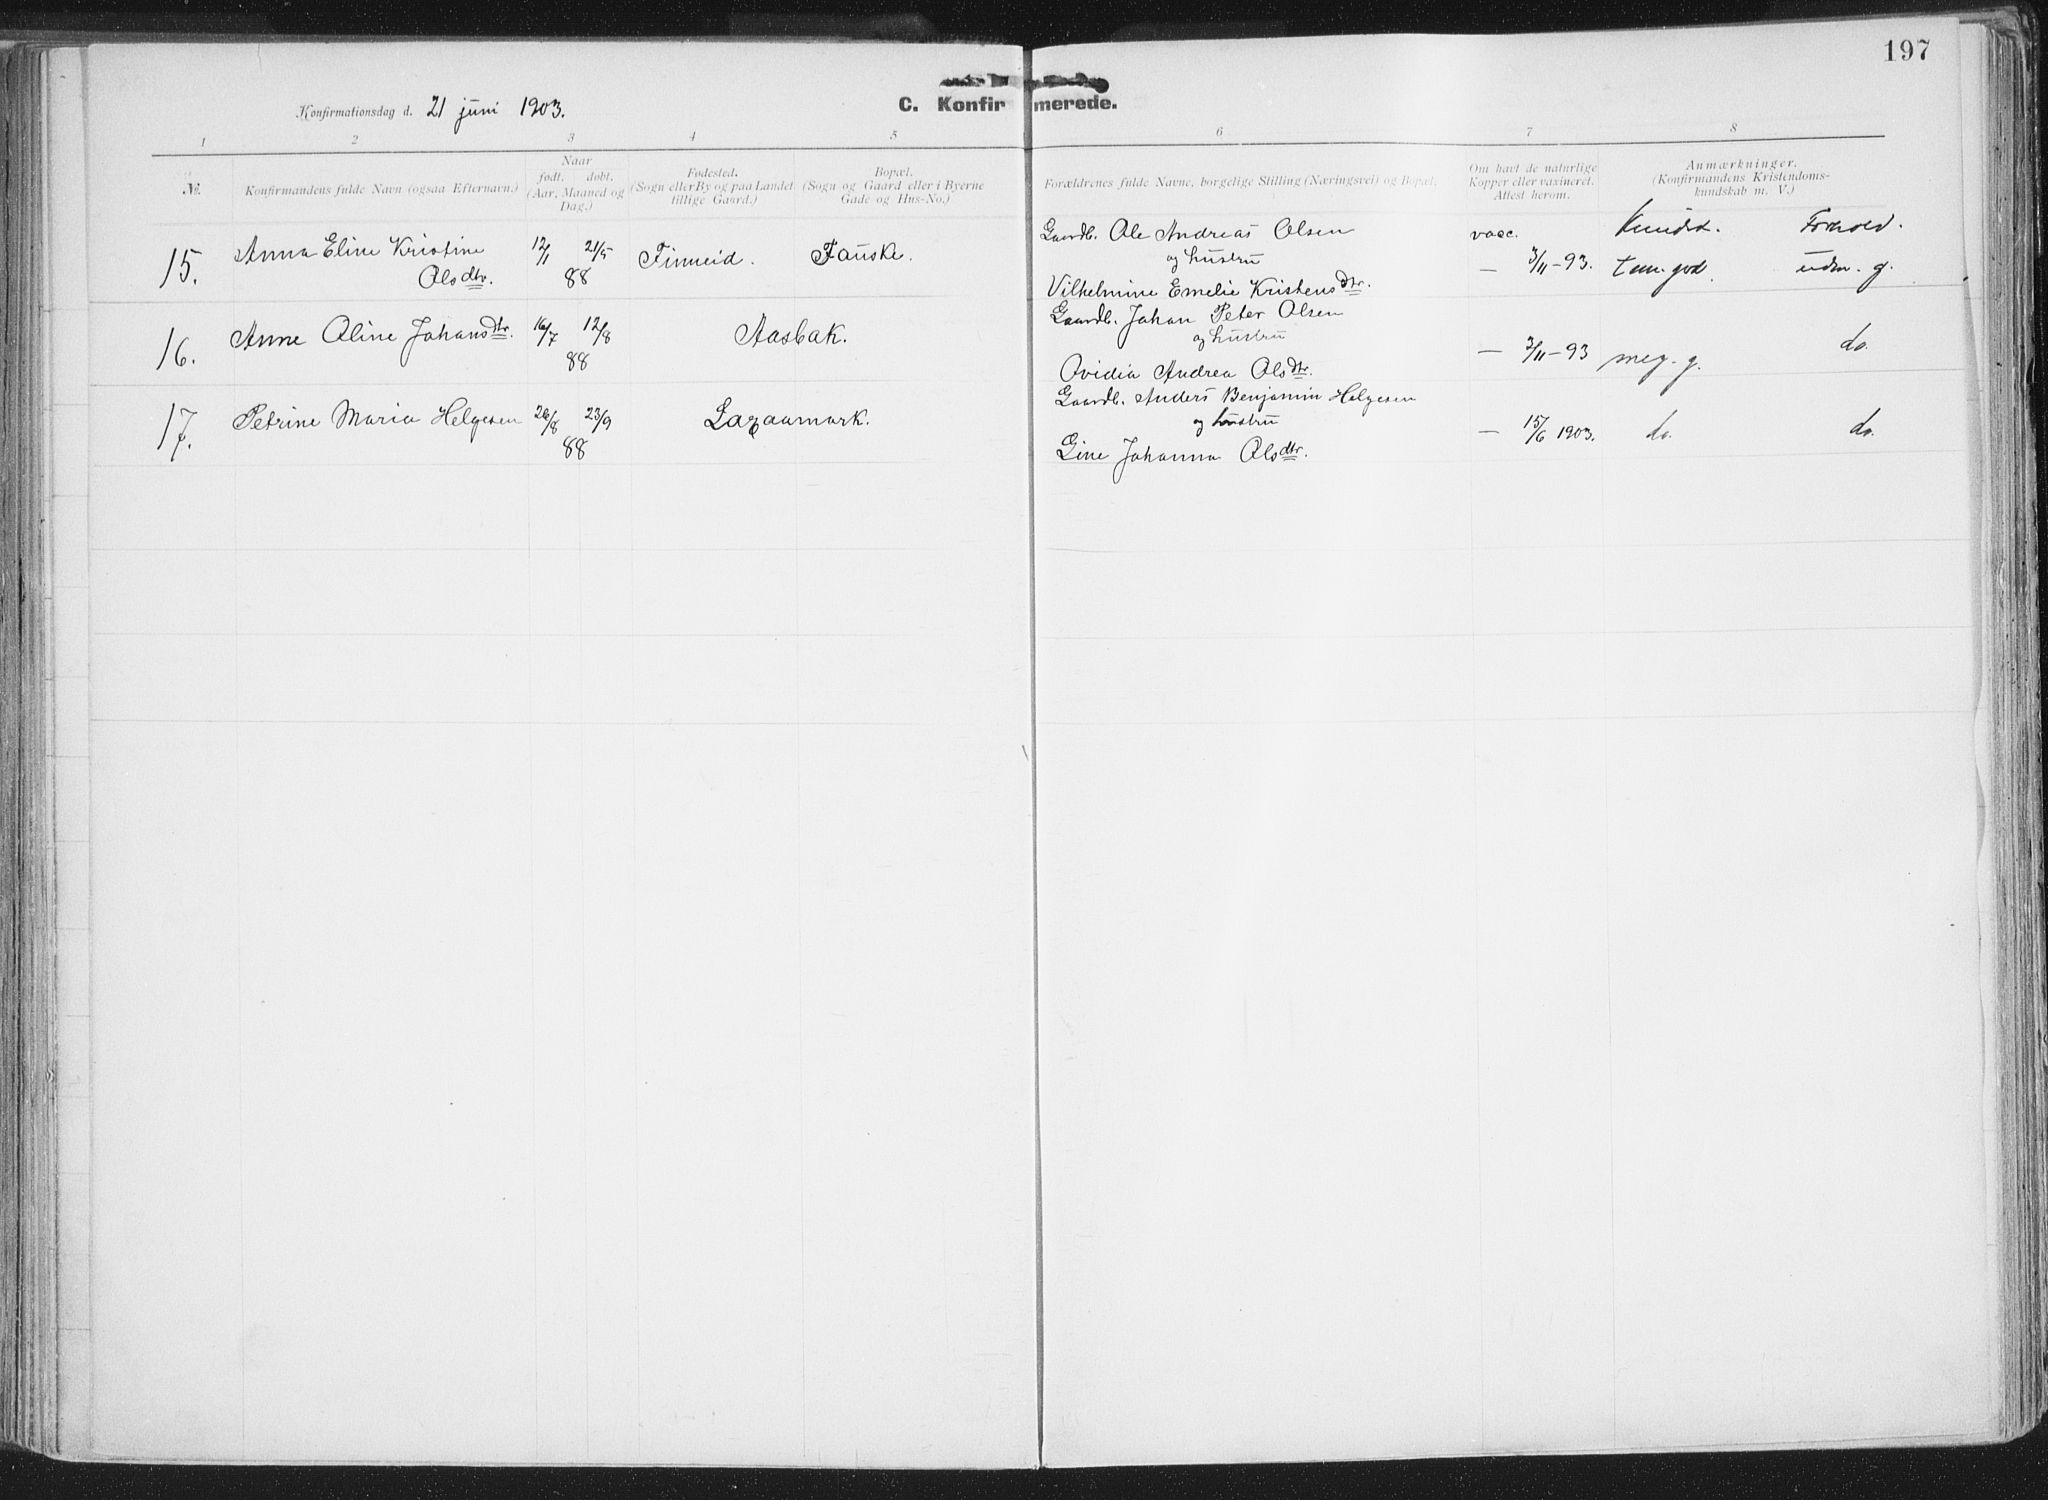 197
C. Konfirmerede.
Konfirmationsdag d. 21 juni 1903.
1 2 3 4 5 6 7 8
№.
Konfirmandens fulde Navn (ogsaa Efternavn.)
Naar
født. døbt.
(Aar, Maaned og
Dag.)
Fødested.
(Sogn eller By og paa Landet
tillige Gaard.)
Bopæl.
(Sogn og Gaard eller i Byerne
Gade og Hus-No.)
Forældrenes fulde Navne, borgelige Stilling (Næringsvei) og Bopæl.
Om havt de naturlige
Kopper eller vaxineret.
Attest herom.
Anmærkninger.
(Konfirmandens Kristendoms-
kundskab m. V.)
15.
Anna Eline Kristine
Olsdtr.
12/1 21/5
88
Finneid. Fauske.
Gaardb. Ole Andreas Olsen
og hustru
Vilhelmine Emelie Kristensdtr.
vacc.
— 3/11-93.
Kundsk. Forhold.
tem. god. udm. g.
16.
Anne Oline Johansdtr.
16/7 12/8
88
Aasbak.
Gaardb. Johan Peter Olsen
og hustru
Ovidia Andrea Olsdtr.
— 3/11-93
meg. g. do.
17.
Petrine Maria Helgesen
26/8 23/9
88
Gaardb. Anders Benjamin Helgesen
og hustru
Gine Johanna Olsdtr.
— 15/6 1903.
do. do.